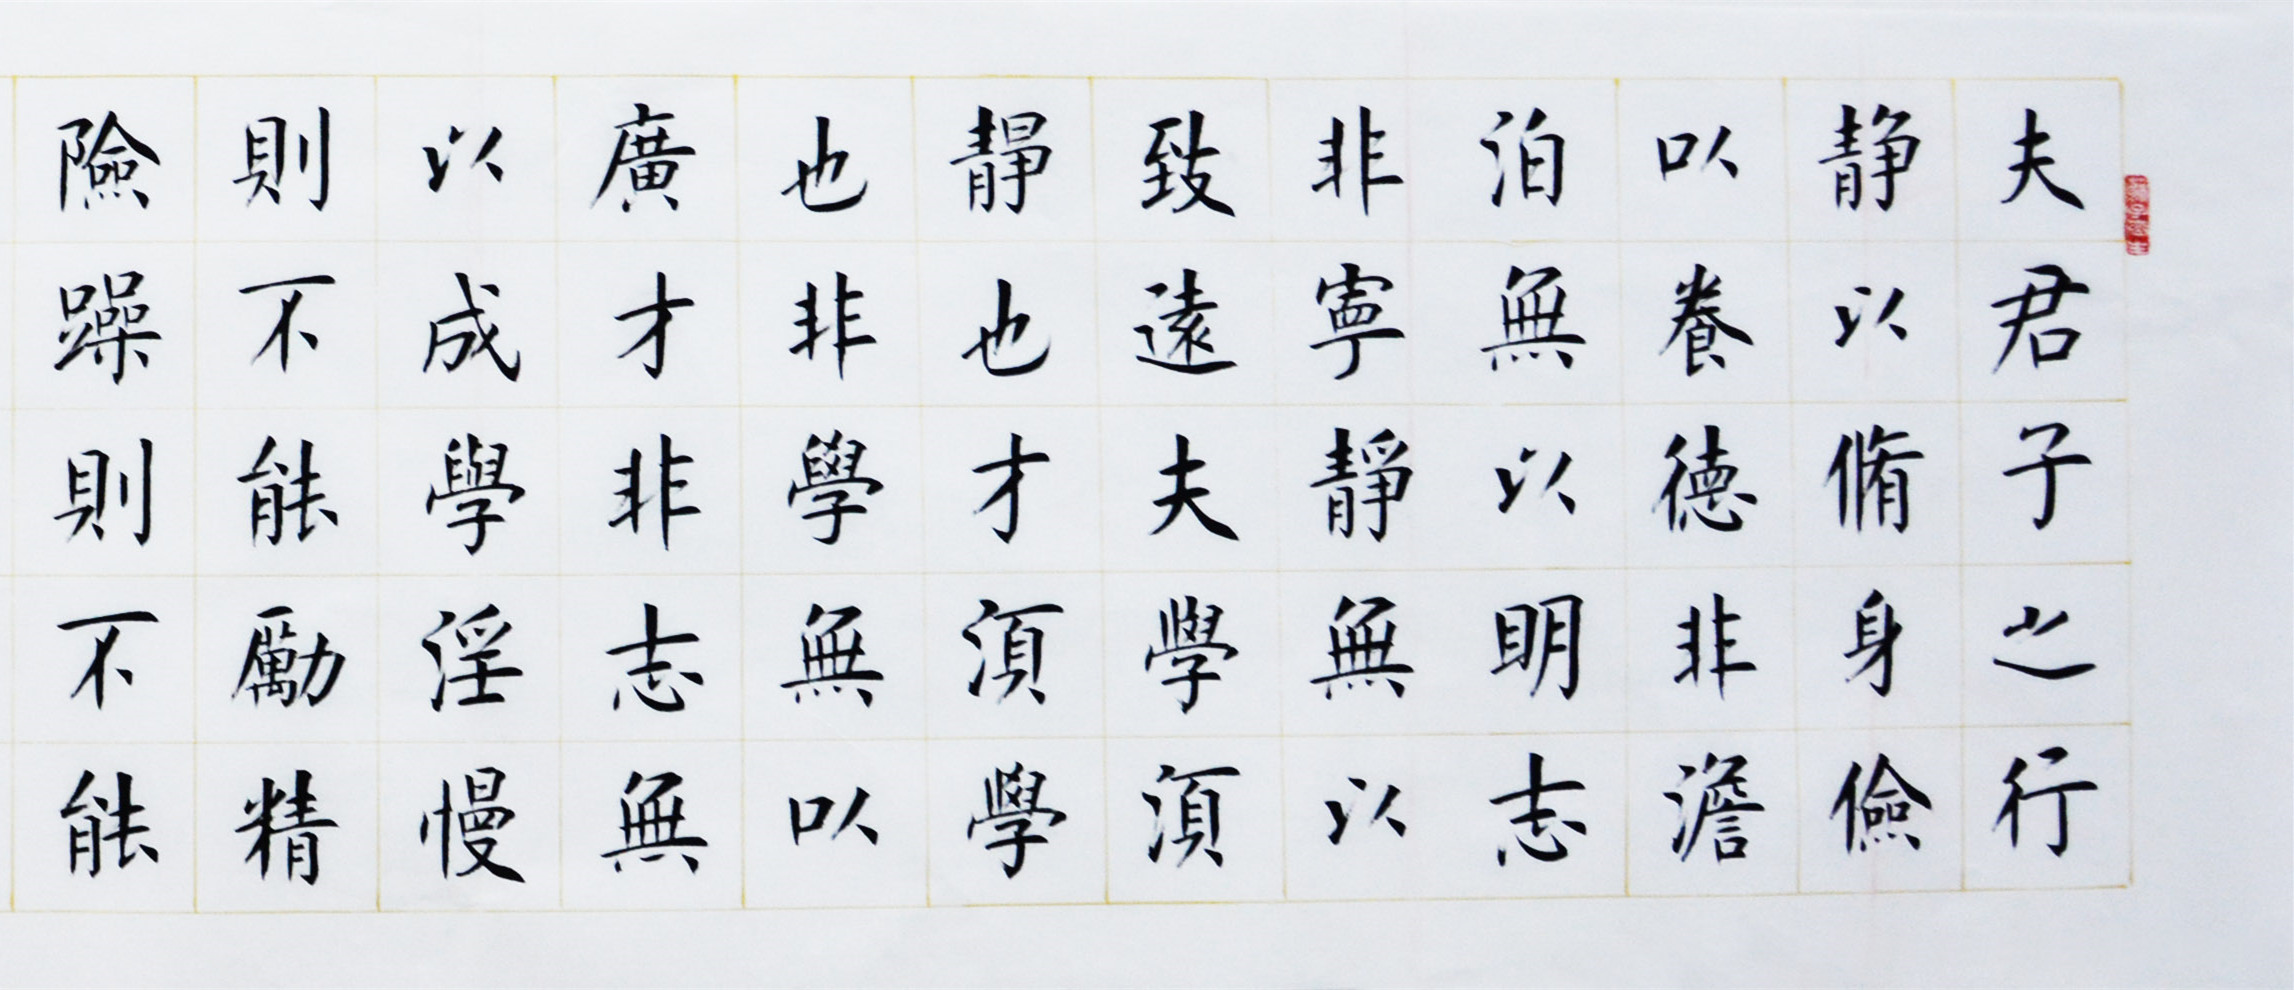 夫君子之行
静以脩身儉
以養德非澹
泊無以明志
非寧靜無以
致遠夫學須
靜也才須學
也非學無以
廣才非志無
以成學淫慢
則不能勵精
險躁則不能